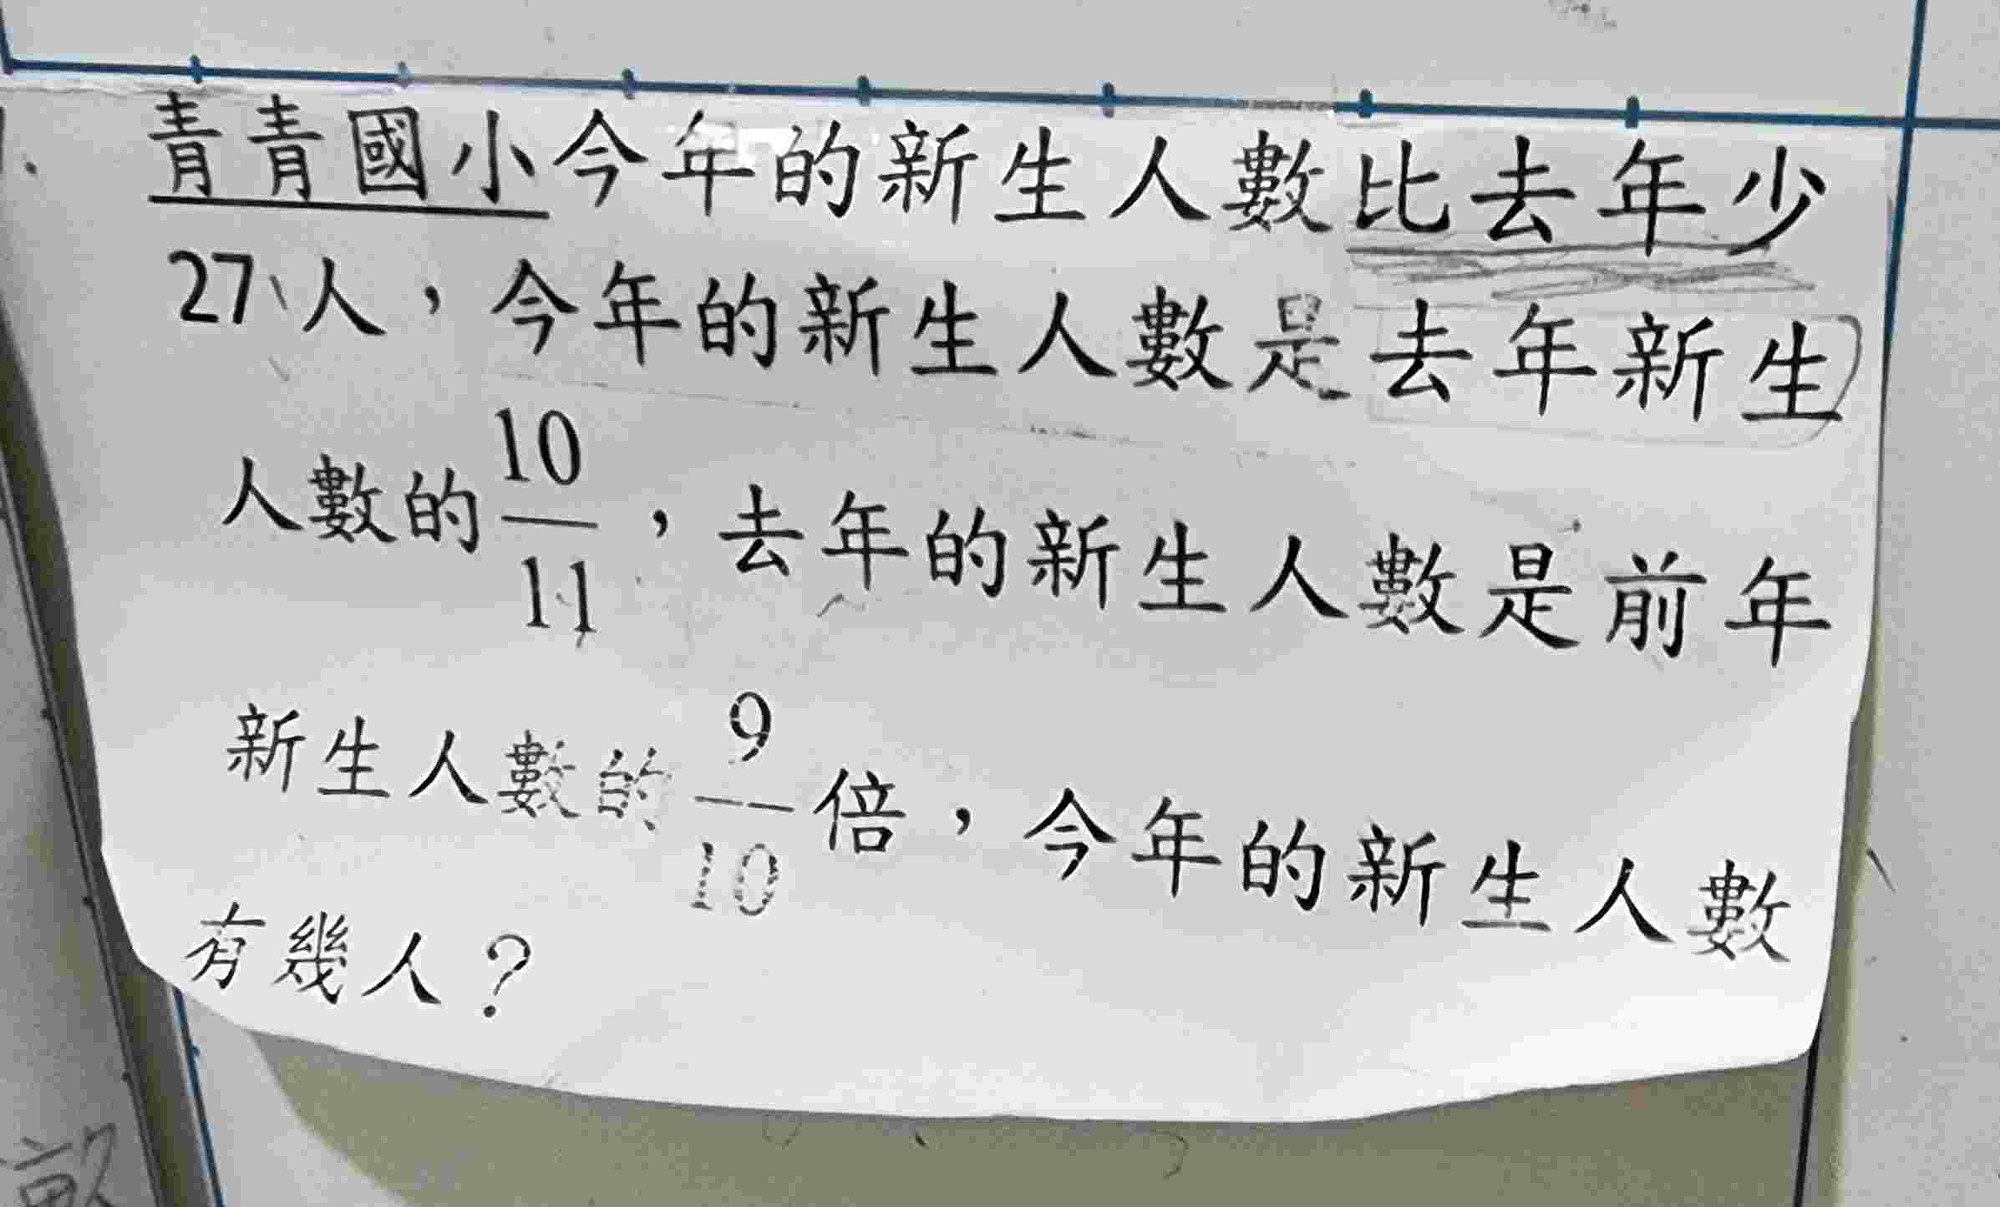 青青國小今年的新生人數比去年少
27人，今年的新生人數是去年新生
人數的10/11，去年的新生人數是前年
新生人數的9/10倍，今年的新生人數
有幾人？